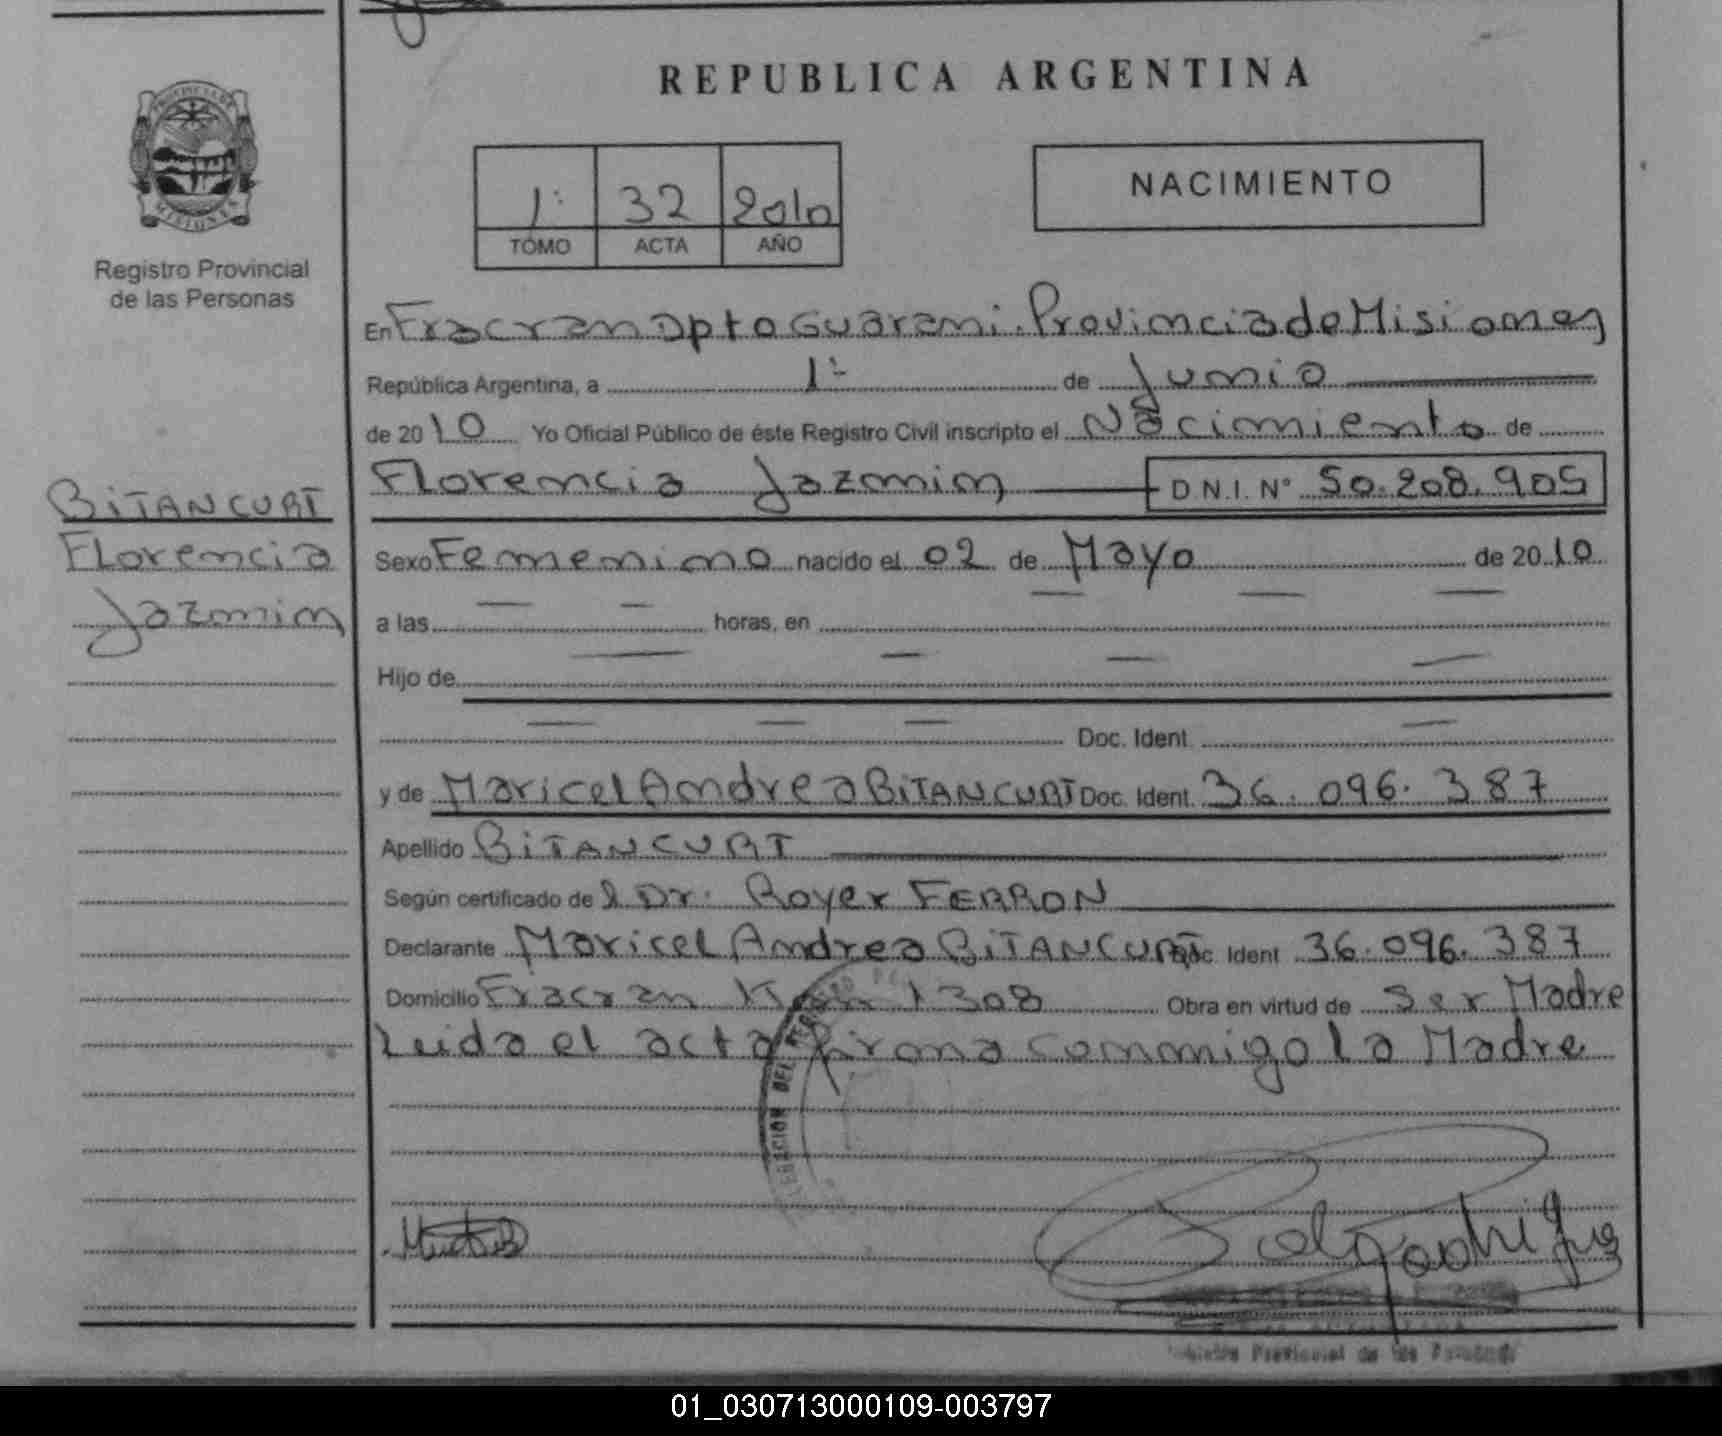 REPUBLICA ARGENTINA
PROVINCIA DE
MISIONES
Registro Provincial
de las Personas
1º 32 2010
TOMO ACTA AÑO
NACIMIENTO
En Fracran Dpto Guarani. Provincia de Misiones
República Argentina, a 1º de Junio
de 2010 Yo Oficial Público de éste Registro Civil inscripto el Nacimiento de
Florencia Jazmin D N.I. N° 50.208.905
BITANCURT
Florencia
Jazmin
Sexo Femenino nacido el 02 de Mayo de 2010
a las — — horas, en — — —
Hijo de — — — —
— — — Doc. Ident. —
y de Maricel Andrea BITANCURT Doc. Ident. 36.096.387
Apellido BITANCURT
Según certificado de l Dr. Royer FERRON
Declarante Maricel Andrea BITANCURT Doc. Ident 36.096.387
Domicilio Fracran Km 1308 Obra en virtud de Ser Madre
Leida el acta firma conmigo la Madre
Provincial de las
01_030713000109-003797